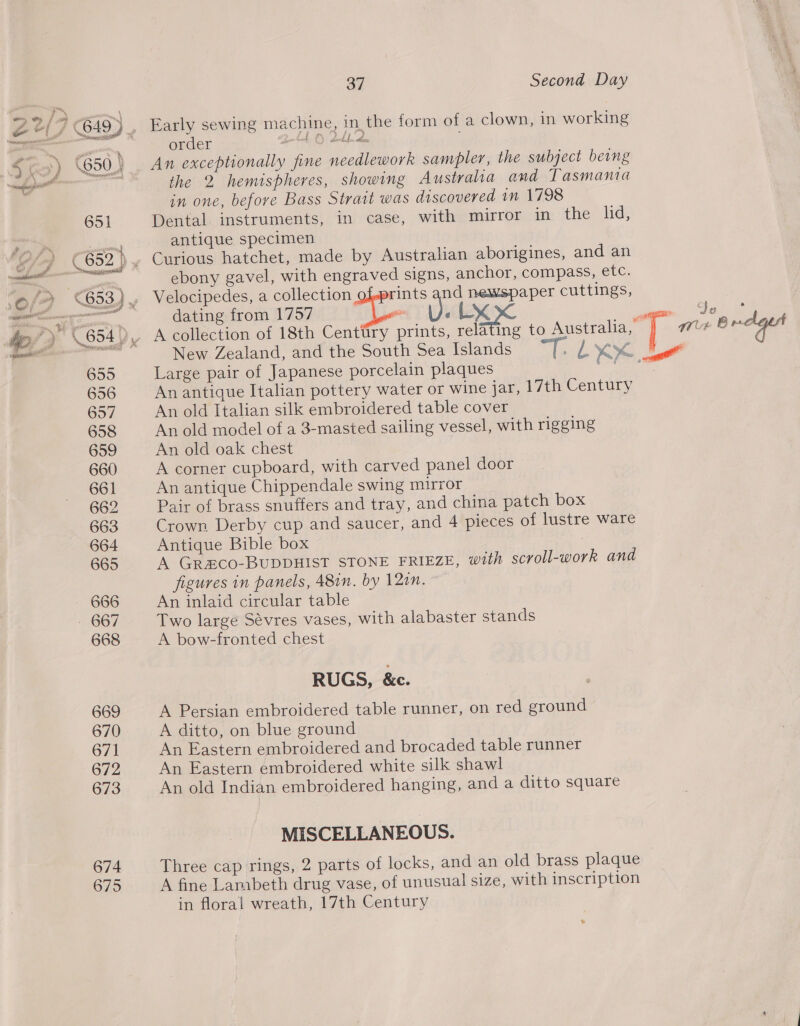 37 Second Day
22/7 649 Early sewing machine, in the form of a clown, in working
order
650 An exceptionally fine needlework sampler, the subject being
the 2 hemispheres, showing Australia and Tasmania
in one, before Bass Strait was discovered in 1798
651 Dental instruments, in case, with mirror in the lid,
antique specimen
652 Curious hatchet, made by Australian aborigines, and an
ebony gavel, with engraved signs, anchor, compass, etc.
653 Velocipedes, a collection of prints and newspaper cuttings,
dating from 1757 U. LXX
654 A collection of 18th Century prints, relating to Australia,
New Zealand, and the South Sea Islands T. LXX
655 Large pair of Japanese porcelain plaques
656 An antique Italian pottery water or wine jar, 17th Century
657 An old Italian silk embroidered table cover
658 An old model of a 3-masted sailing vessel, with rigging
659 An old oak chest
660 A corner cupboard, with carved panel door
661 An antique Chippendale swing mirror
662 Pair of brass snuffers and tray, and china patch box
663 Crown Derby cup and saucer, and 4 pieces of lustre ware
664 Antique Bible box
665 A GRÆCO-BUDDHIST STONE FRIEZE, with scroll-work and
figures in panels, 48in. by 12in.
666 An inlaid circular table
667 Two large Sèvres vases, with alabaster stands
668 A bow-fronted chest
RUGS, &c.
669 A Persian embroidered table runner, on red ground
670 A ditto, on blue ground
671 An Eastern embroidered and brocaded table runner
672 An Eastern embroidered white silk shawl
673 An old Indian embroidered hanging, and a ditto square
MISCELLANEOUS.
674 Three cap rings, 2 parts of locks, and an old brass plaque
675 A fine Lambeth drug vase, of unusual size, with inscription
in floral wreath, 17th Century